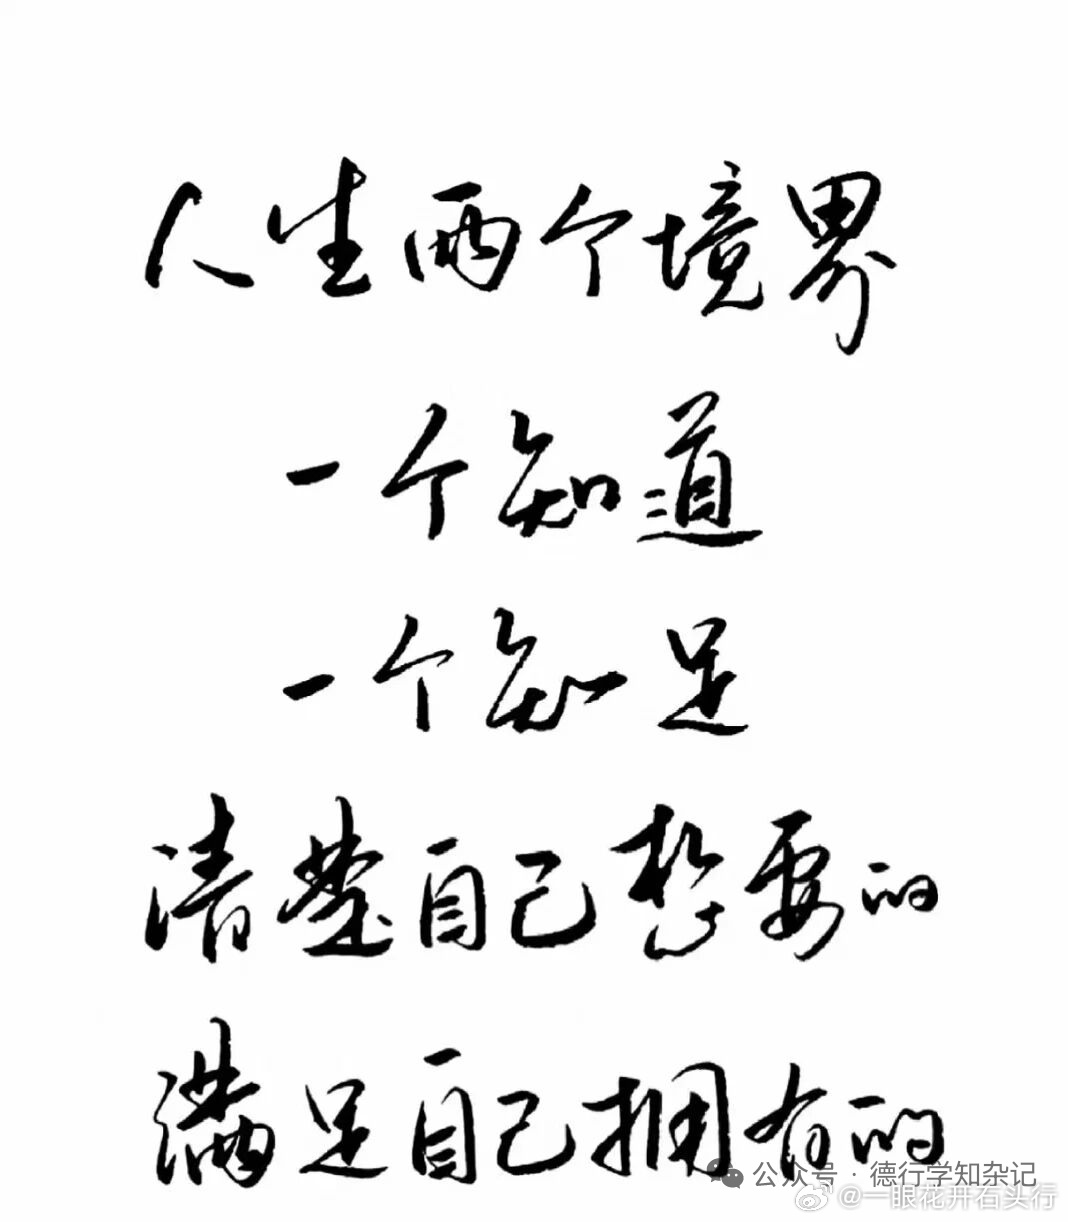 人生两个境界
一个知道
一个知足
清楚自己想要的
满足自己拥有的
公众号·德行学知杂记
@一眼花开石头行